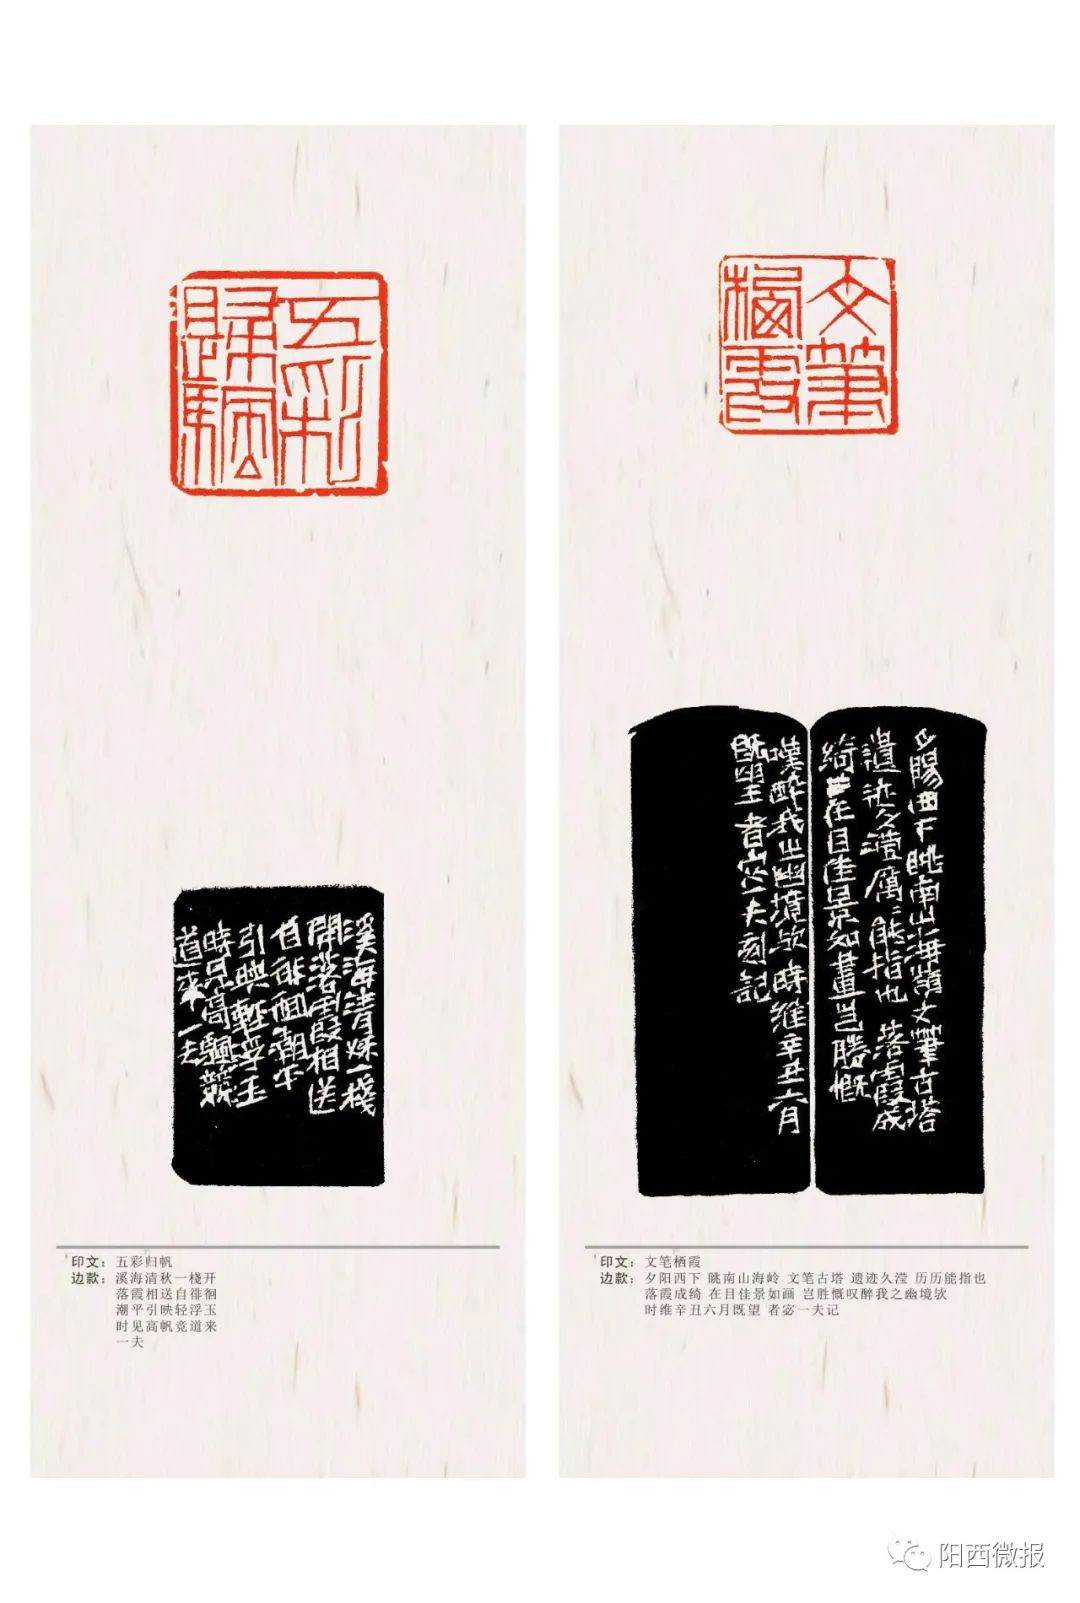 五彩
歸驅
溪海清秌一棧
開落霞相送
自徘徊潮平
引映輕浮玉
時見高颿競
道來一夫
印文：五彩归帆
边款：溪海清秋一棧开
落霞相送自徘徊
潮平引映轻浮玉
时见高帆竞道来
一夫
文筆
栖霞
夕陽西下眺南山海嶺文筆古塔
遺迹久瀅厲〻能指也落霞成
綺在目佳景如畫岂勝慨
嘆醉我之幽境欤時維辛丑六月
既望者宓一夫刻記
印文：文笔栖霞
边款：夕阳西下 眺南山海岭 文笔古塔 遗迹久滢 历历能指也
落霞成绮 在目佳景如画 岂胜慨叹醉我之幽境欤
时维辛丑六月既望 者宓一夫记
阳西微报